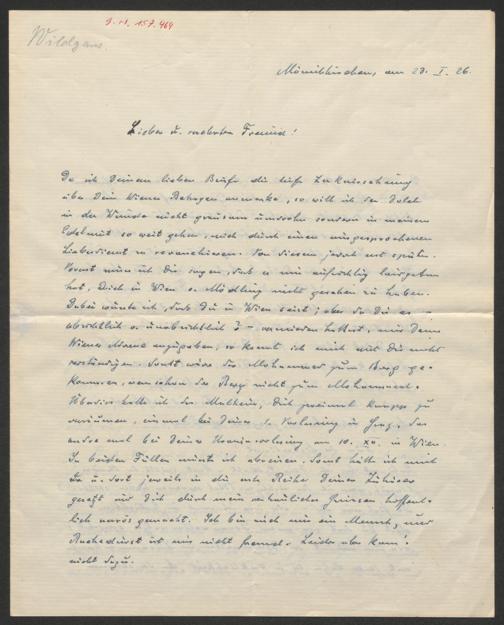 Wildgans
J. N. 157.464
Mönichkirchen, am 23. I. 26.
Lieber u. verehrter Freund!
Da ich Deinem lieben Briefe die tiefe Zerknirschung
über Dein Wiener Betragen anmerke, so will ich den Dolch
in der Wunde nicht grausam umdrehn sondern in meinem
Edelmut so weit gehen, mich durch einen ausgesprochenen
Liebesdienst zu revanchieren. Von diesem jedoch erst später.
Vorerst muss ich Dir sagen, dass es mir aufrichtig leidgetan
hat, Dich in Wien o. Mödling nicht gesehen zu haben.
Dabei wusste ich, dass Du in Wien seist; aber da Du es –
absichtlich o. unabsichtlich? – vermieden hattest, mir Deine
Wiener Adresse anzugeben, so konnt ich mich mit Dir nicht
verständigen. Sonst wäre der Mohammed zum Berg ge-
kommen, wenn schon der Berg nicht zum Mohammed.
Überdies hatte ich das Malheur, Dich zweimal knapp zu
versäumen, einmal bei Deiner Vorlesung in Graz, das
andre mal bei Deiner Uraniavorlesung am 10. XII. in Wien.
In beiden Fällen musste ich abreisen. Sonst hätt ich mich
da u. dort jeweils in die erste Reihe Deiner Zuhörer
gesetzt und Dich durch mein erbauliches Grinsen hoffent-
lich nervös gemacht. Ich bin auch nur ein Mensch, und
Rachedurst ist mir nicht fremd. Leider aber kam's
nicht dazu.